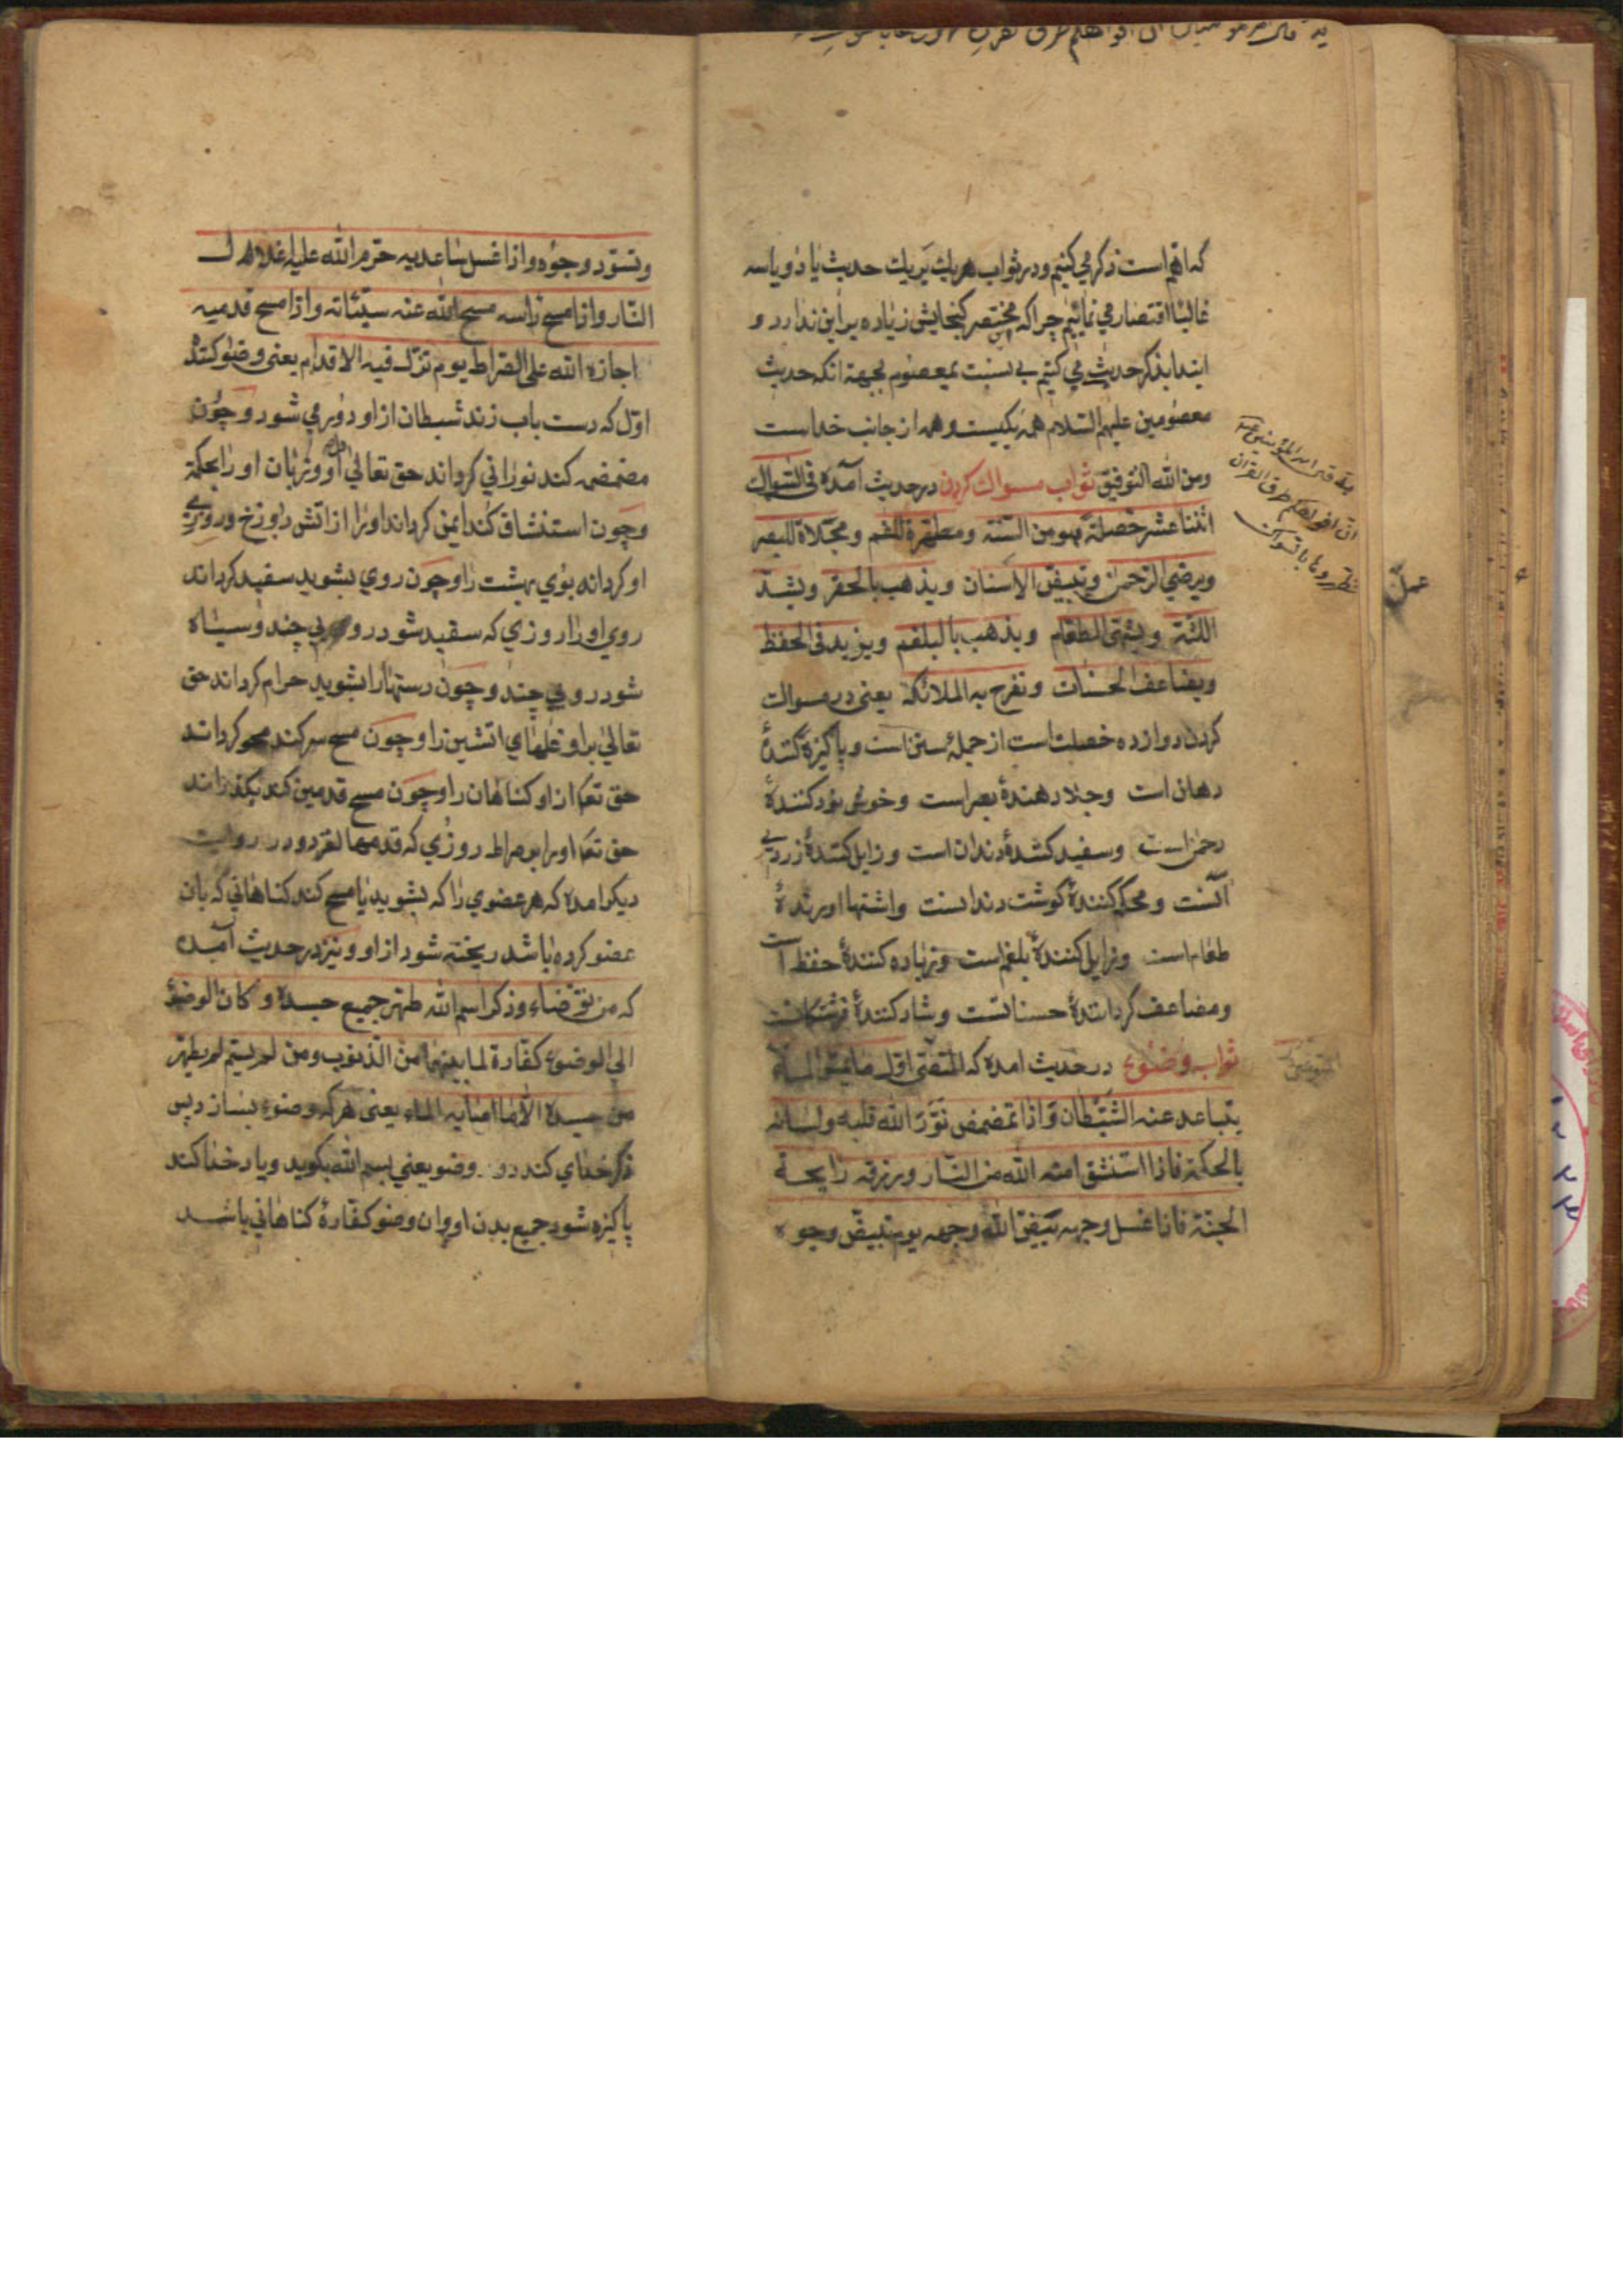 که اهم است ذکر می کنیم و در ثواب هریك بریك حدیث یا دو یا سه
غالبا اقتصار می نمائیم چرا که مختصر کنجایش زیاده بر این ندارد و
ابتدا بذکر حدیث می کنیم بی نسبت بمعصوم بجهة انکه حدیث
معصومین علیهم السلام همه یکیست و همه از جانب خداست
ومن الله التوفیق ثواب مسواك کردن در حدیث آمده فی السواك
اثنتا عشر خصلة هو من السنة ومطهرة للفم ومجلاة للبصر
ویرضی الرحمن وتبیض الاسنان ویذهب بالحفر ویشد
اللثة ویشهی الطعام ویذهب بالبلغم ویزید فی الحفظ
ویضاعف الحسنات وتفرح به الملائکة یعنی در مسواك
کردن دوازده خصلت است از جملهٔ سنن است و پاکیزه کنندهٔ
دهان است وجلا دهندهٔ بصر است وخوشنود کنندهٔ
رحمن است وسفید کنندهٔ دندان است وزایل کنندهٔ زردیی
آنست ومحکم کنندهٔ کوشت دندانست واشتها اورندهٔ
طعام است وزایل کنندهٔ بلغم است وزیاده کنندهٔ حفظ است
ومضاعف کردانندهٔ حسناتست وشاد کنندهٔ فرشتکانست
ثواب وضوء در حدیث امده که المتوضی اول ما یمس الماء
یتباعد عنه الشیطان واذا تمضمض نور الله قلبه ولسانه
بالحکمة فاذا استنشق امنه الله من النار ورزقه رایحة
الجنة فاذا غسل وجهه بیض الله وجهه یوم تبیض وجوه
وتسود وجوه واذا غسل ساعدیه حرم الله علیه اغلال
النار واذا مسح راسه مسح الله عنه سیئاته واذا مسح قدمیه
اجازه الله علی الصراط یوم تزل فیه الاقدام یعنی وضو کننده
اول که دست باب زند شیطان از او دور می شود وچون
مضمضه کند نورانی کرداند حق تعالی دل او وزبان او را بحکمة
وچون استنشاق کند ایمن کرداند او را از اتش دوزخ وروزی
او کرداند بوی بهشت را وچون روی بشوید سفید کرداند
روی او را روزی که سفید شود رویی چند وسیاه
شود رویی چند وچون دستها را بشوید حرام کرداند حق
تعالی بر او غلهای اتشین را وچون مسح سر کند محو کرداند
حق تعا از او کناهان را وچون مسح قدمین کند بکذراند
حق تعا او را بر صراط روزی که قدمها لغزد ودر روایت
دیکر امده که هر عضوی را که بشوید یا مسح کند کناهانی که بان
عضو کرده باشد ریخته شود از او ونیز در حدیث آمده
که من توضاء وذکر اسم الله طهر جمیع جسده وکان الوضوء
الی الوضوء کفارة لما بینهما من الذنوب ومن لم یسم لم یطهر
من جسده الا ما اصابه الماء یعنی هر که وضوء بسازد پس
ذکر خدای کند در وضو یعنی بسم الله بکوید ویاد خدا کند
پاکیزه شود جمیع بدن او وان وضو کفارهٔ کناهانی باشد